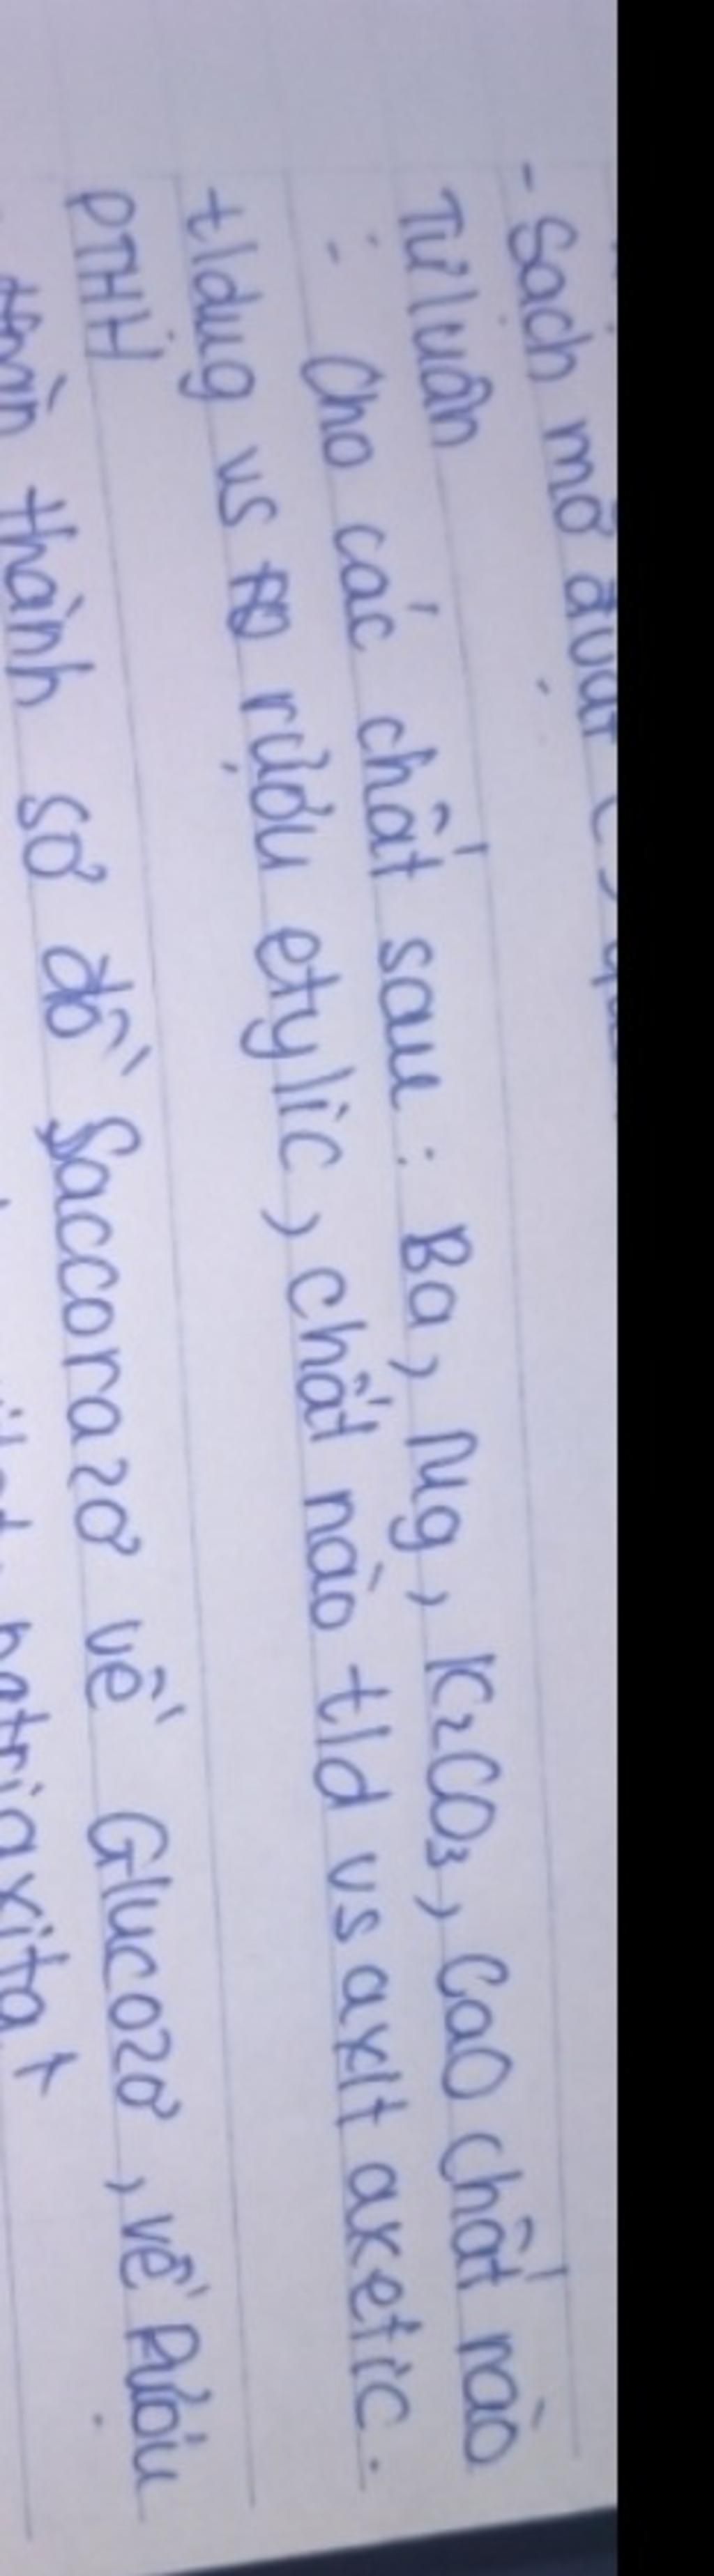 - Sạch mỡ
Tự luận
: Cho các chất sau : Ba, Mg, K₂CO₃, CaO chất nào
tldụg vs rượu etylic, chất nào tld vs axit axetic.
PTHH
thành sơ đồ Saccorazơ về Glucozơ, về Rượu